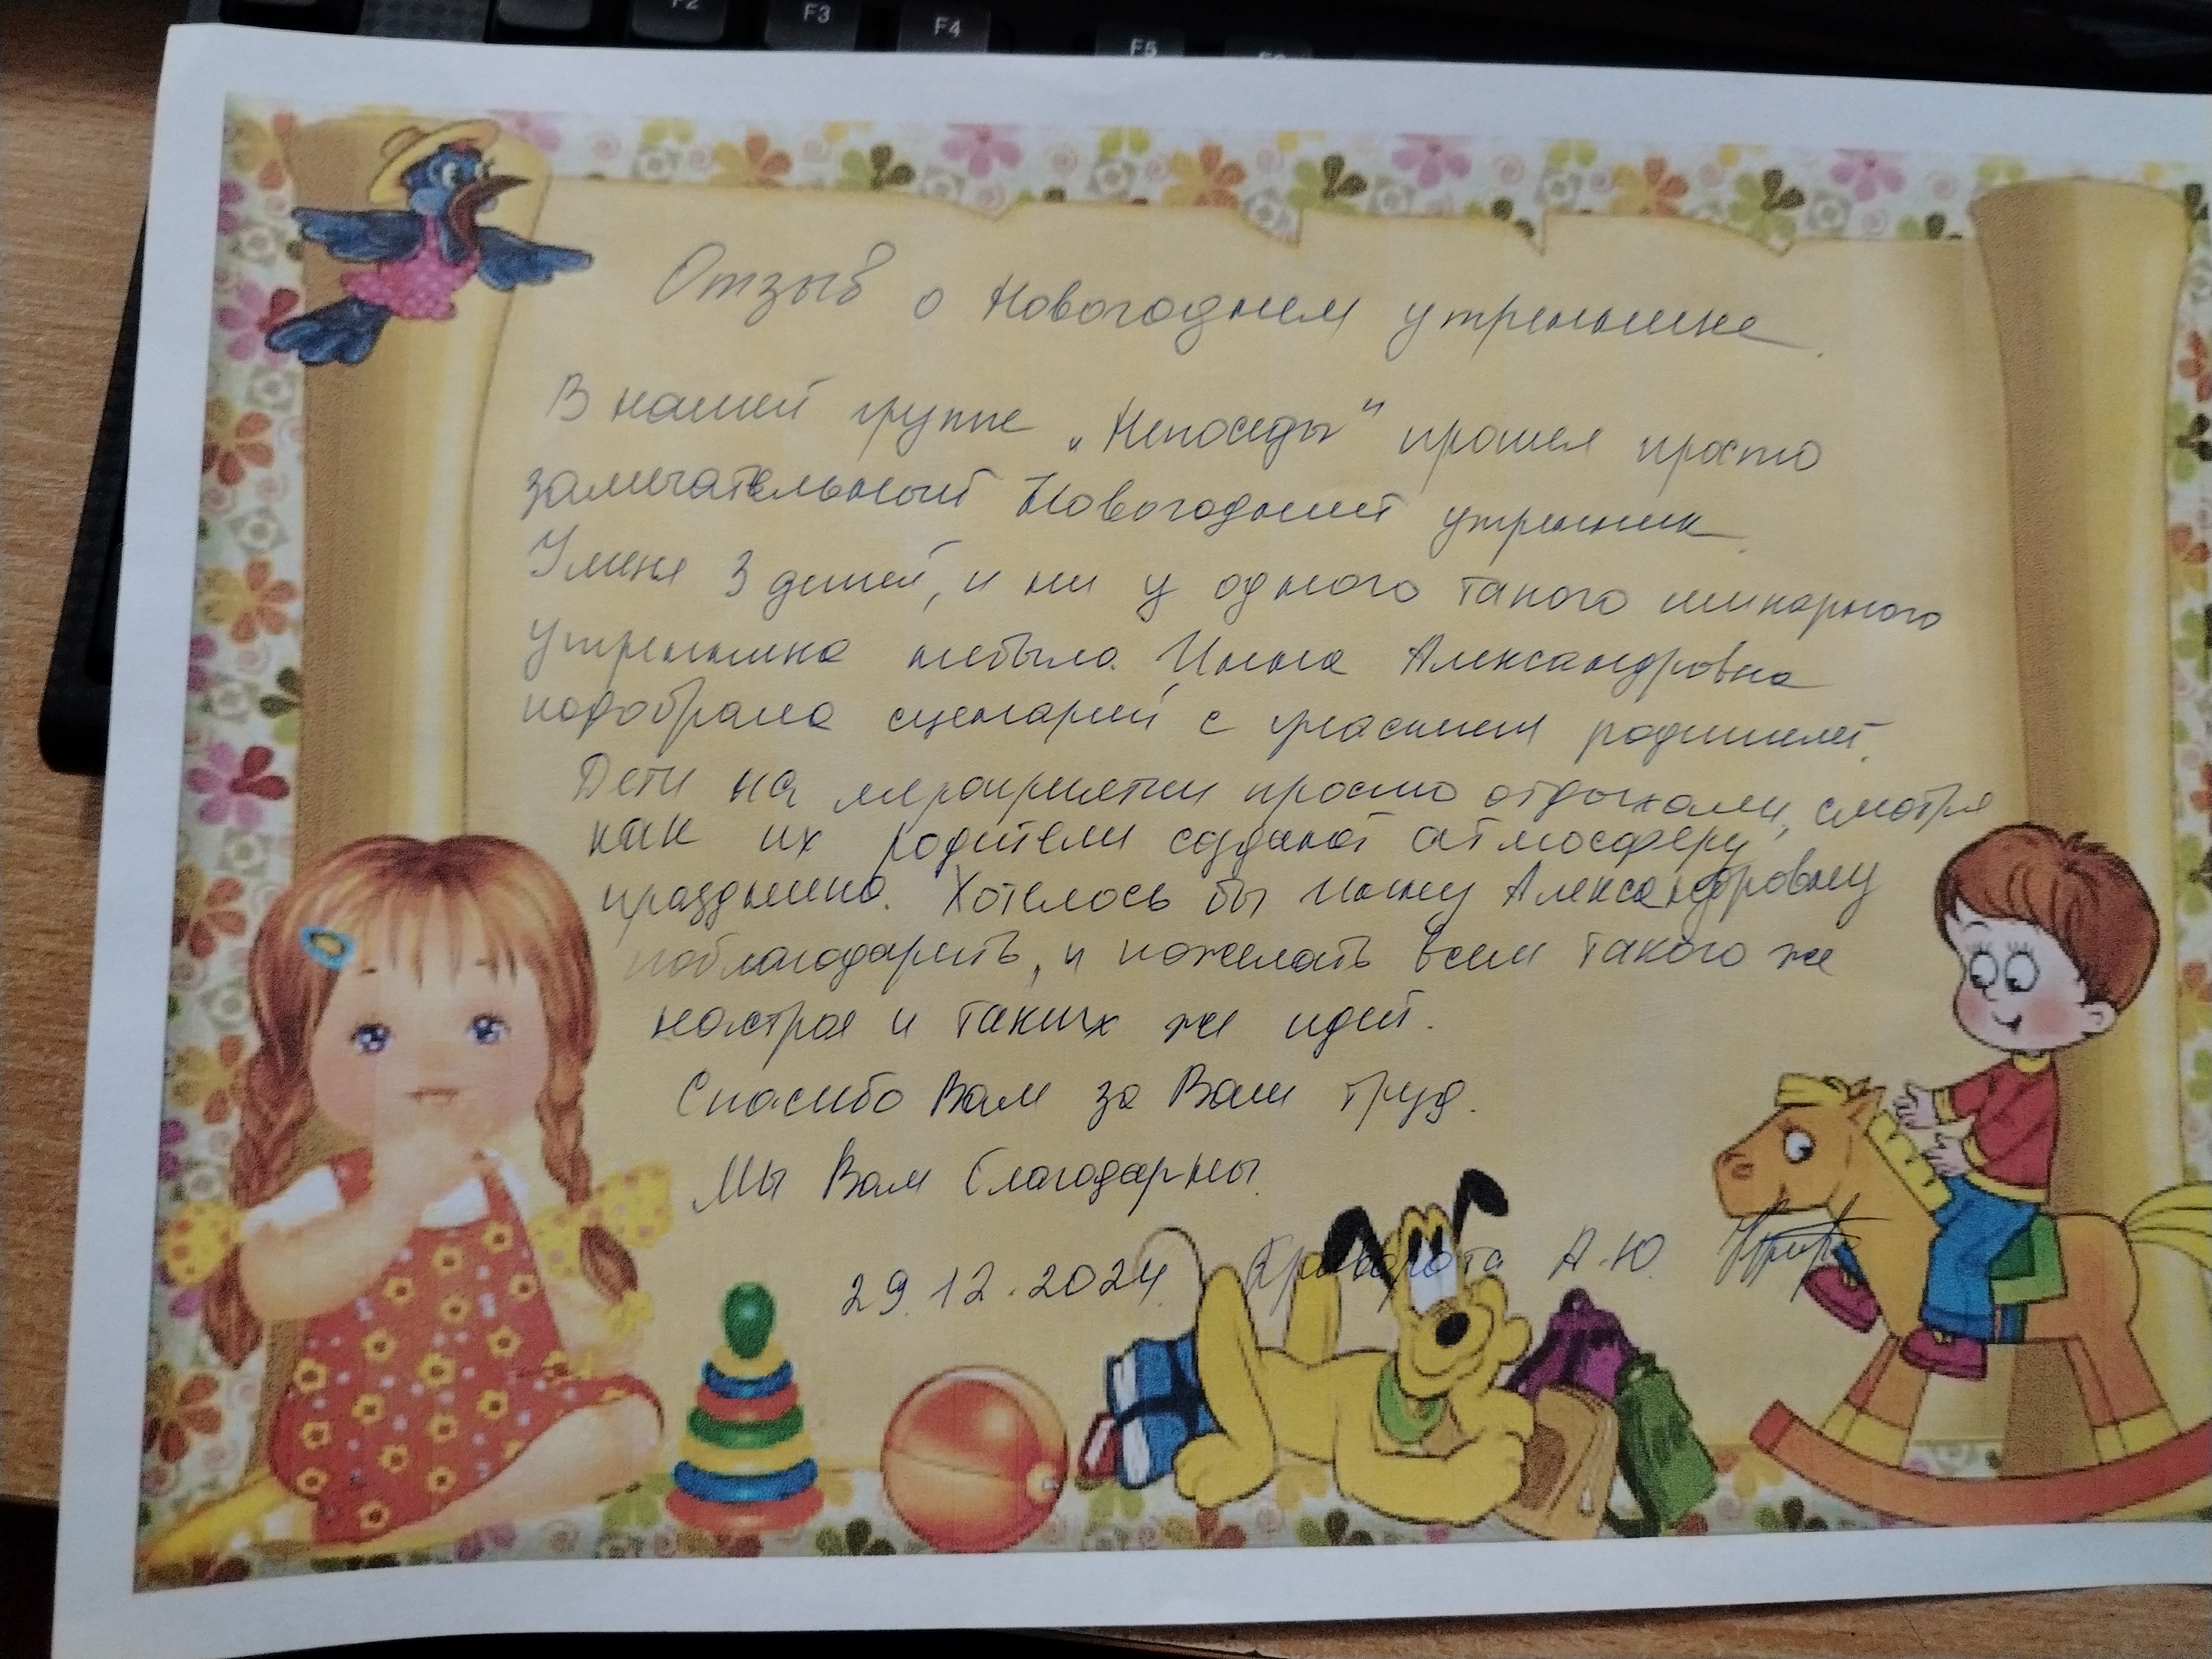 F2
F3
F4
F5
Отзыв о Новогоднем утреннике.
В нашей группе „Непоседы“ прошел просто
замечательный Новогодний утренник.
У меня 3 детей, и ни у одного такого шикарного
утренника небыло. Инна Александровна
подобрала сценарий с участием родителей.
Дети на мероприятии просто отдыхали, смотря
как их родители создают атмосферу
праздника. Хотелось бы Инну Александровну
поблагодарить, и пожелать всем такого же
настроя и таких же идей.
Спасибо Вам за Ваш труд.
Мы Вам благодарны.
29.12.2024. Криворота А.Ю.